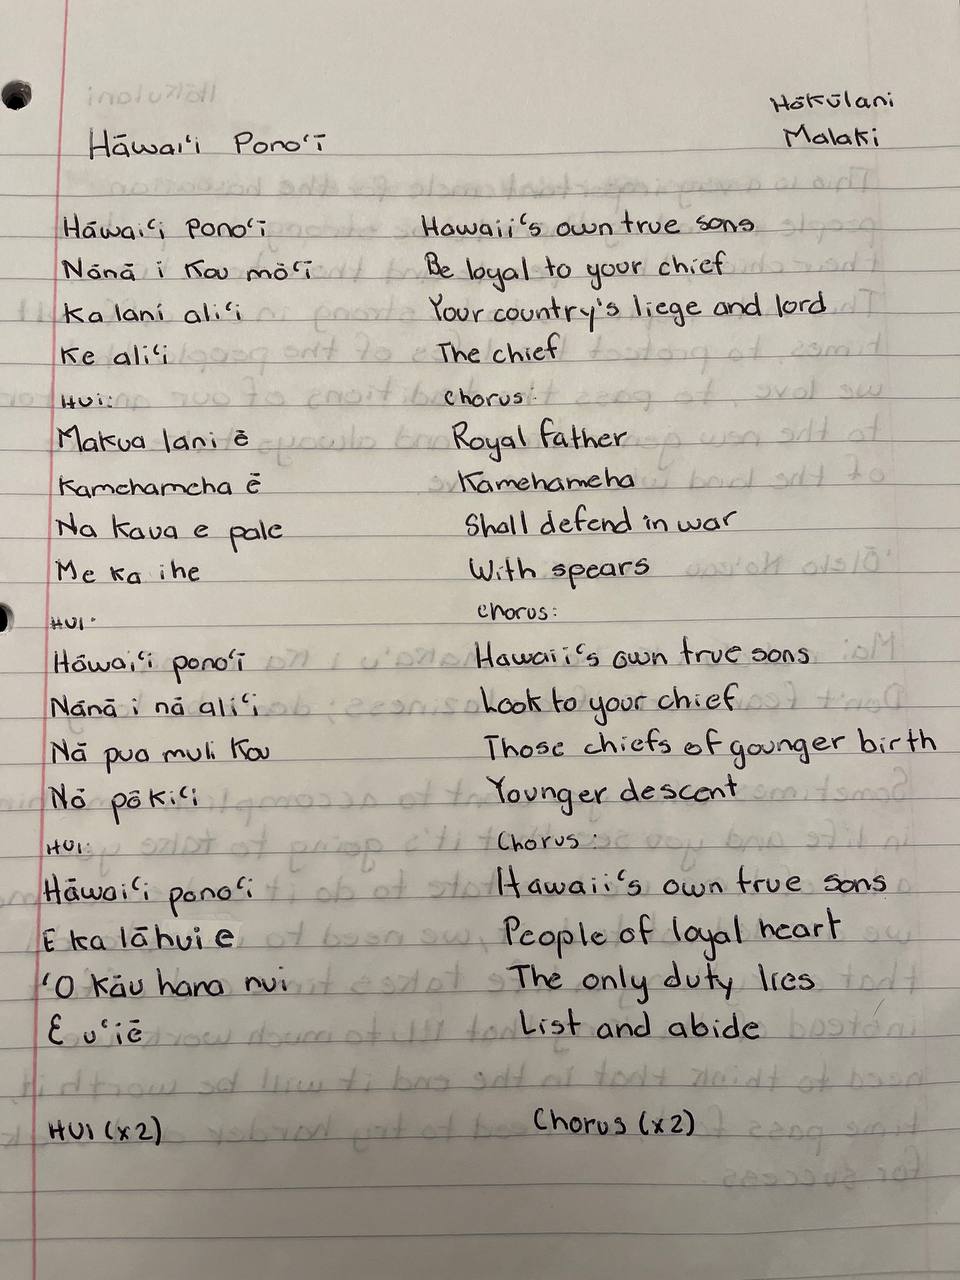 Hōkūlani
Hāwaiʻi Ponoʻī
Malaki
Hāwaiʻi Ponoʻī Hawaii's own true sons
Nānā i Kou mōʻī Be loyal to your chief
Ka lani aliʻi Your country's liege and lord
Ke aliʻi The chief
HUI: Chorus:
Makua lani ē Royal father
Kamehameha ē Kamehameha
Na Kaua e pale Shall defend in war
Me ka ihe With spears
HUI: Chorus:
Hāwaiʻi ponoʻī Hawaii's own true sons
Nānā i nā aliʻi Look to your chief
Nā pua muli Kou Those chiefs of gounger birth
Nā pōkiʻi Younger descent
HUI: Chorus:
Hāwaiʻi ponoʻi Hawaii's own true sons
E ka lāhui e People of loyal heart
ʻO Kāu hana nui The only duty lies
E uʻiē List and abide
HUI (x2) Chorus (x2)